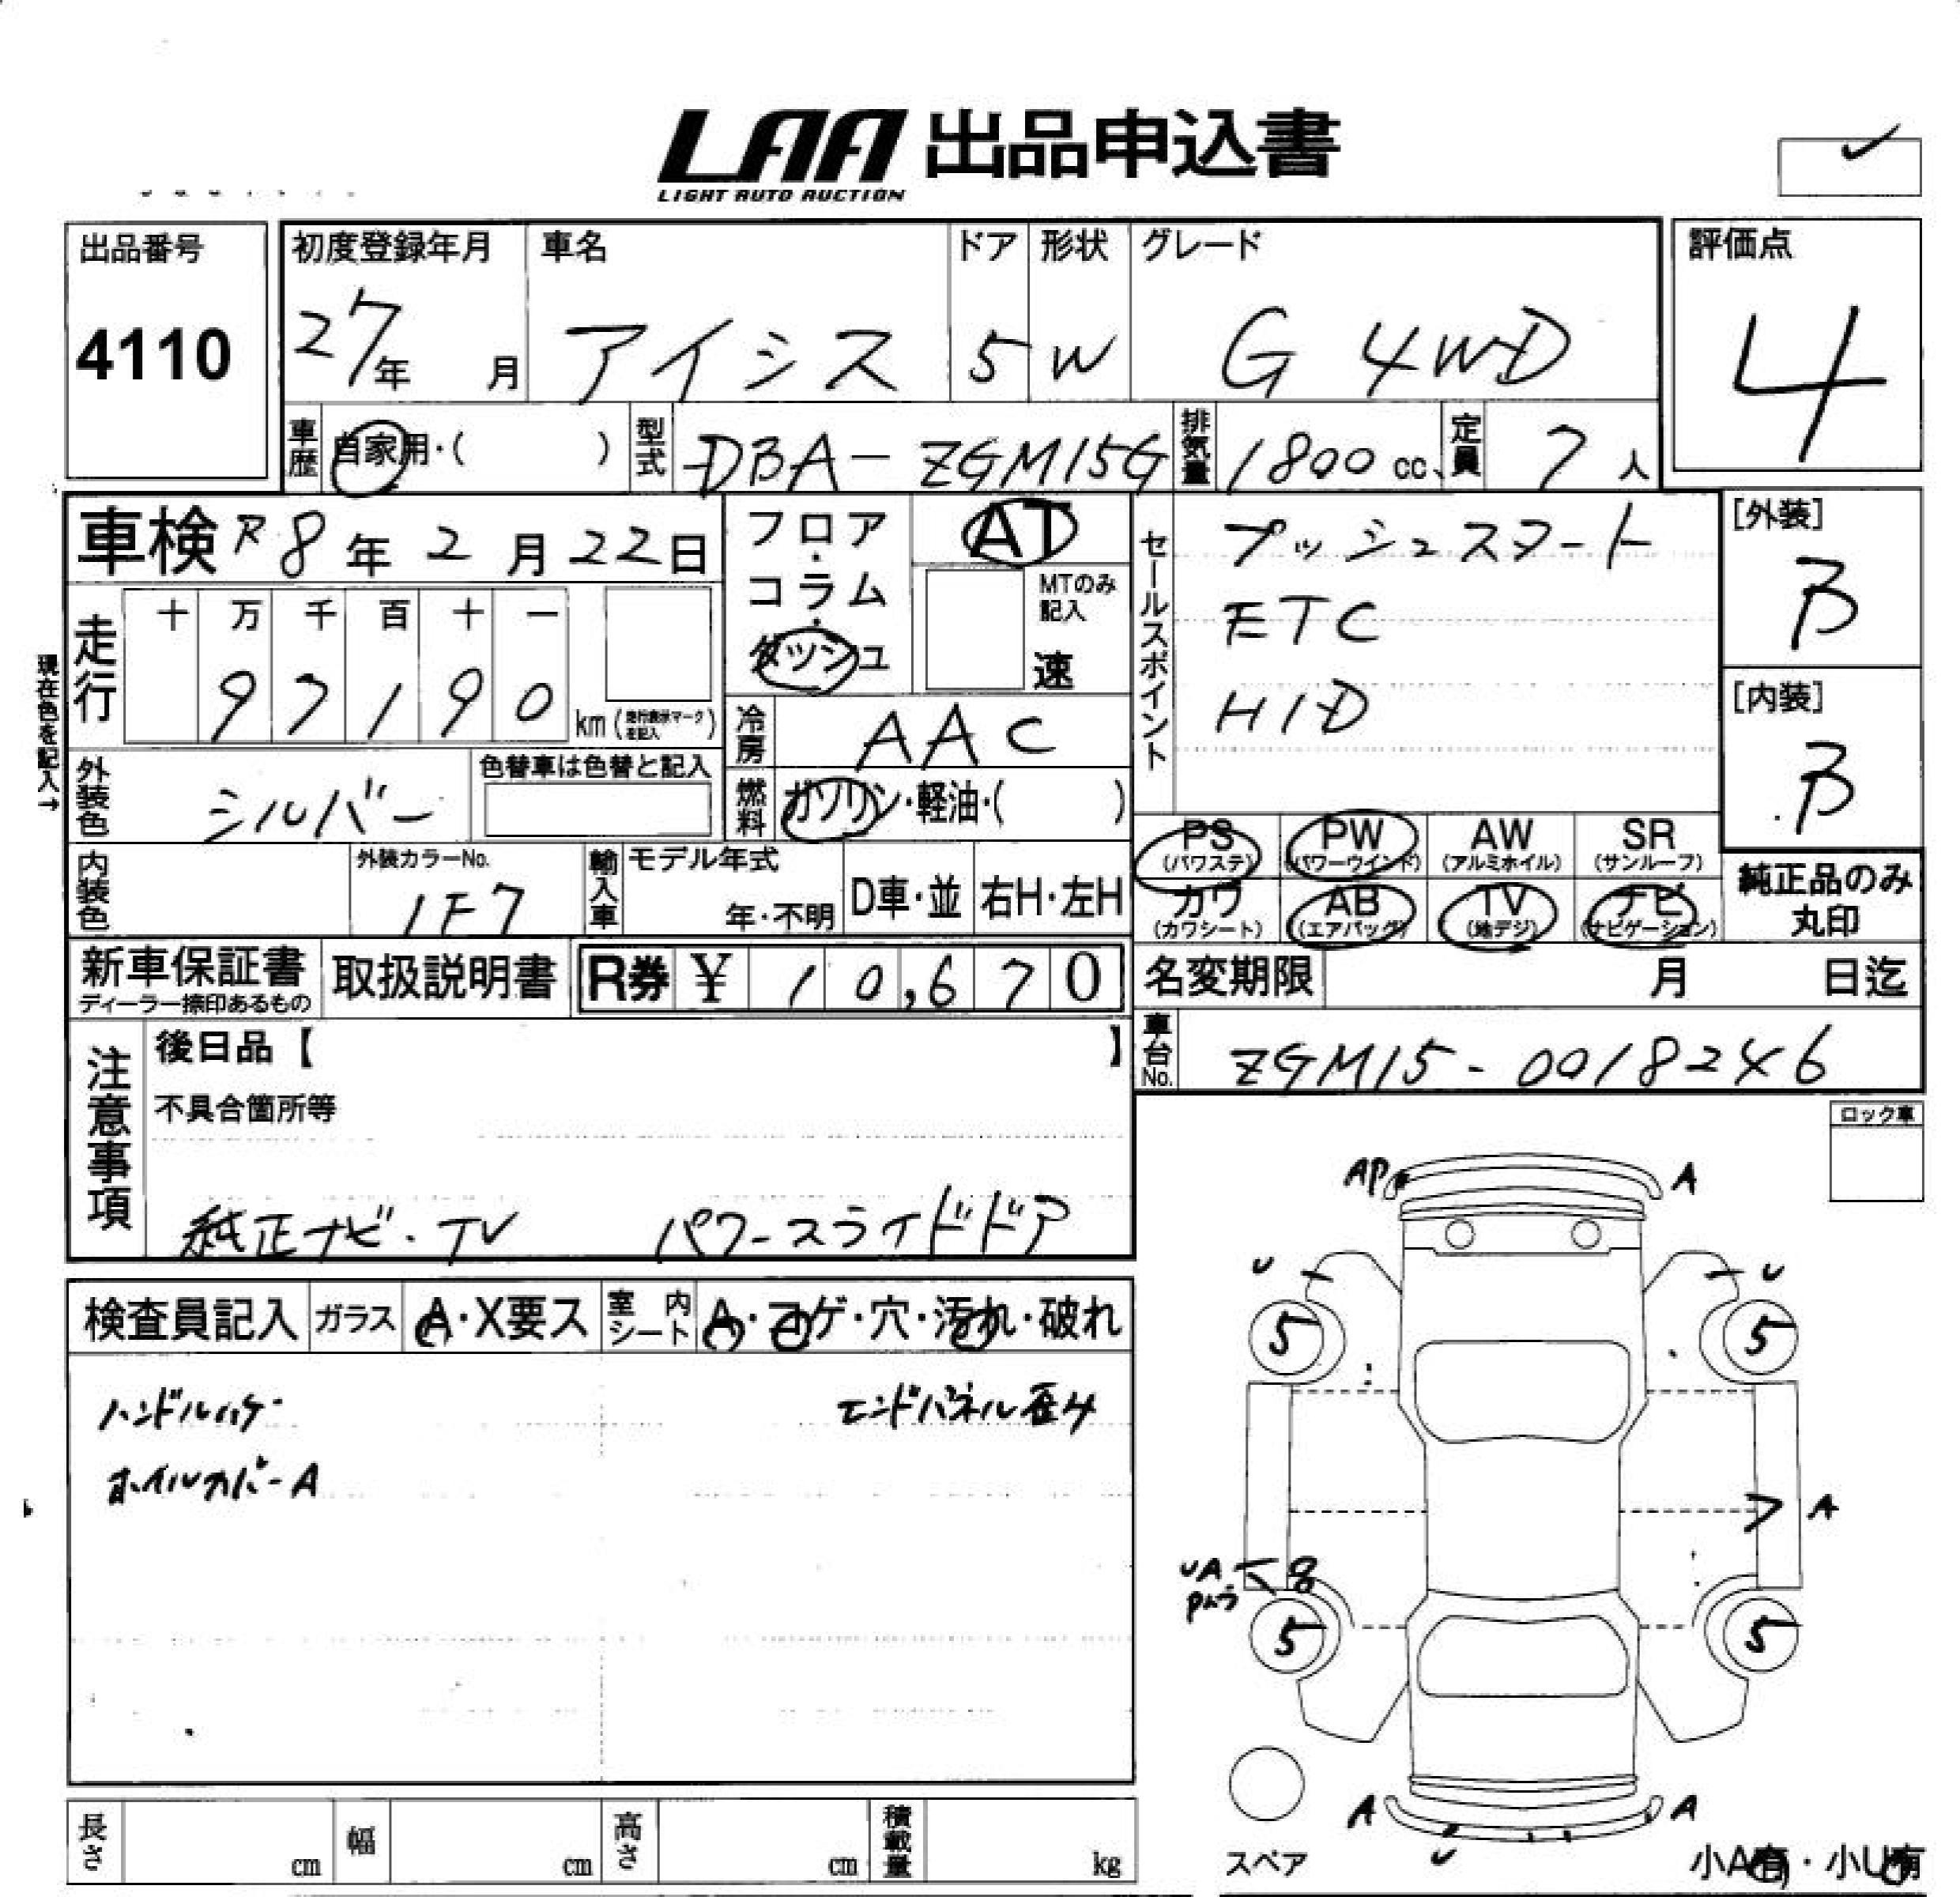 LAA 出品申込書
LIGHT AUTO AUCTION
出品番号
4110
初度登録年月
27年 月
車名
アイシス
ドア
5
形状
W
グレード
G 4WD
評価点
4
車歴
自家用・( )
型式
DBA-ZGM15G
排気量
1800 cc
定員
7 人
車検 R8年 2月 22日
走行
十 万 千 百 十 一
9 7 1 9 0 km (走行表示マークを記入)
現在色を記入→
外装色
シルバー
色替車は色替と記入
内装色
外装カラーNo.
1F7
輸入車
モデル年式
年・不明
D車・並
右H・左H
フロア・コラム・ダッシュ
AT
MTのみ記入
速
冷房
AAC
燃料
ガソリン・軽油・( )
セールスポイント
プッシュスタート
ETC
HID
[外装]
B
[内装]
B
PS (パワステ)
PW (パワーウインド)
AW (アルミホイル)
SR (サンルーフ)
カワ (カワシート)
AB (エアバッグ)
TV (地デジ)
ナビ (ナビゲーション)
純正品のみ丸印
新車保証書
ディーラー捺印あるもの
取扱説明書
R券 ¥ 10,670
名変期限 月 日迄
車台No.
ZGM15-0018246
注意事項
後日品【 】
不具合箇所等
純正ナビ・TV パワースライドドア
ロック車
検査員記入
ガラス A・X要ス
室内シート A・コゲ・穴・汚れ・破れ
ハンドルハゲ
エンドパネル歪み
ホイルカバーA
AP A
U U
5 5
A
UA 8
5 5
A A
U
スペア
小A有・小U有
長さ cm
幅 cm
高さ cm
積載量 kg